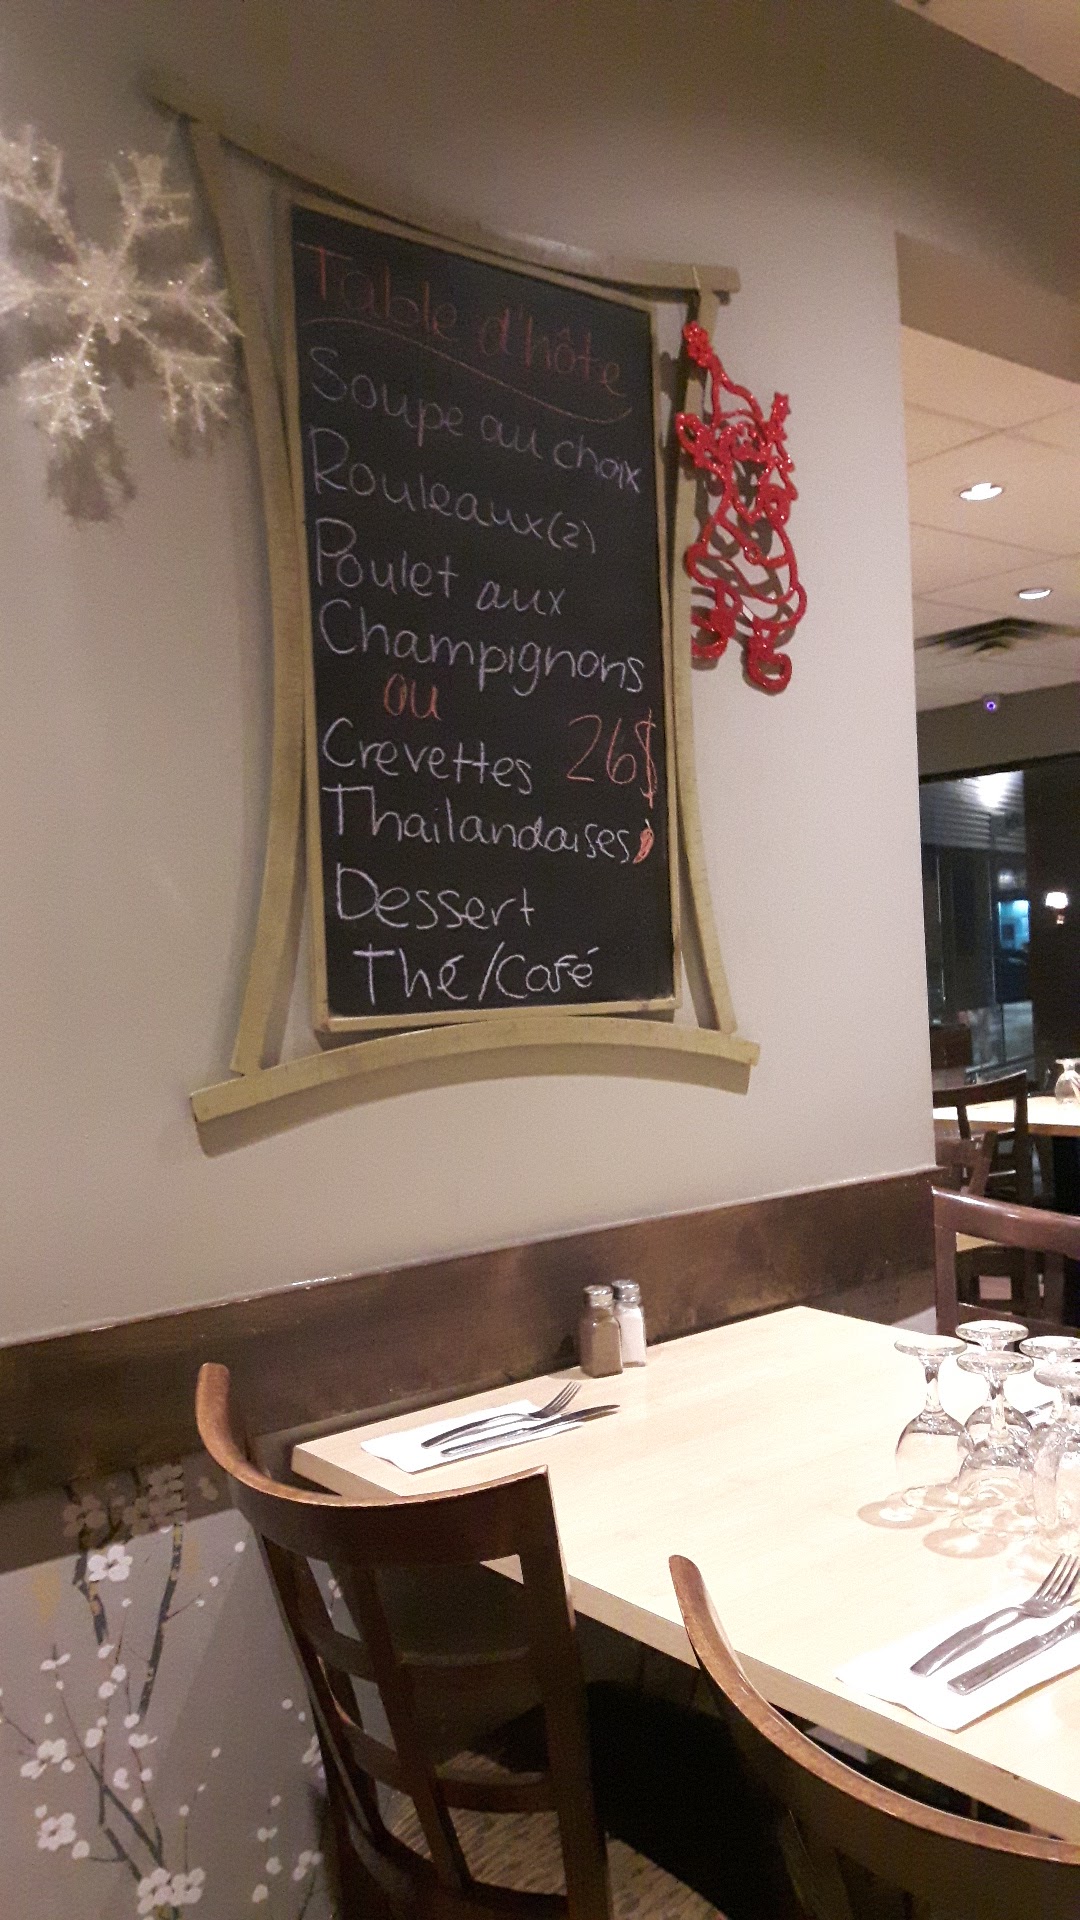 Table d'hôte
Soupe au choix
Rouleaux (2)
Poulet aux
Champignons
ou
Crevettes 26$
Thailandaises
Dessert
Thé/Café